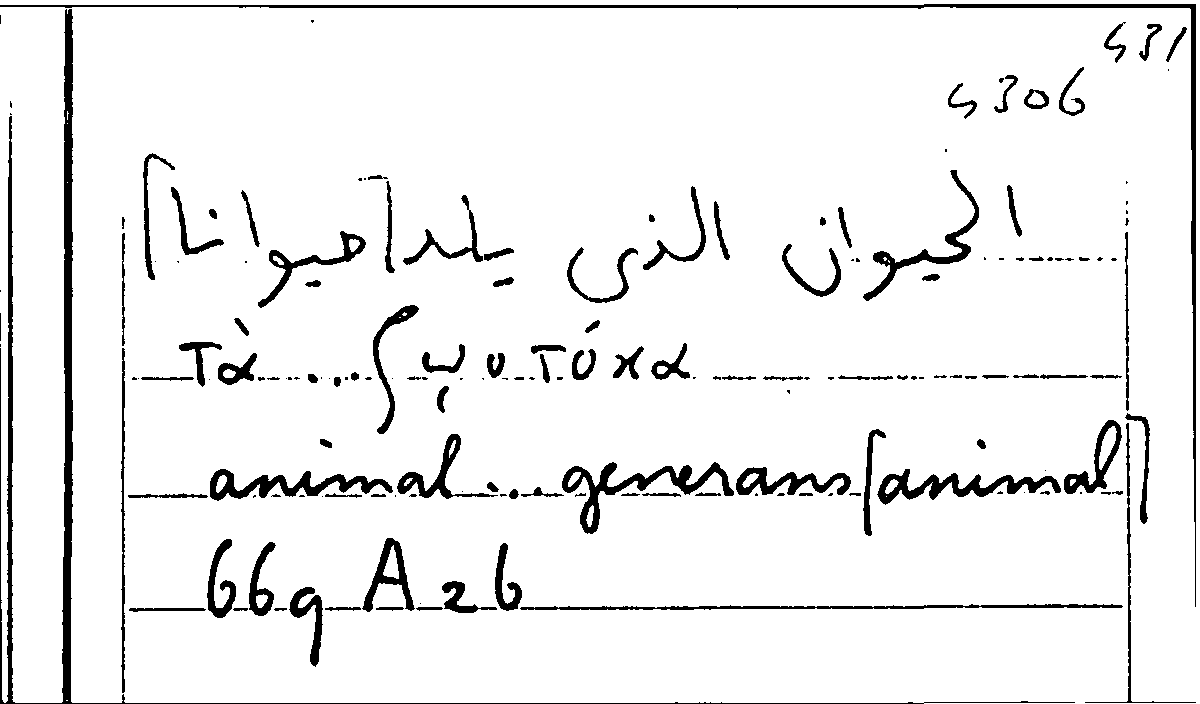 531
5306
الحيوان الذى يلد [حيوانا]
τὰ ... ζῳοτόκα
animal ... generans [animal]
669 A 26